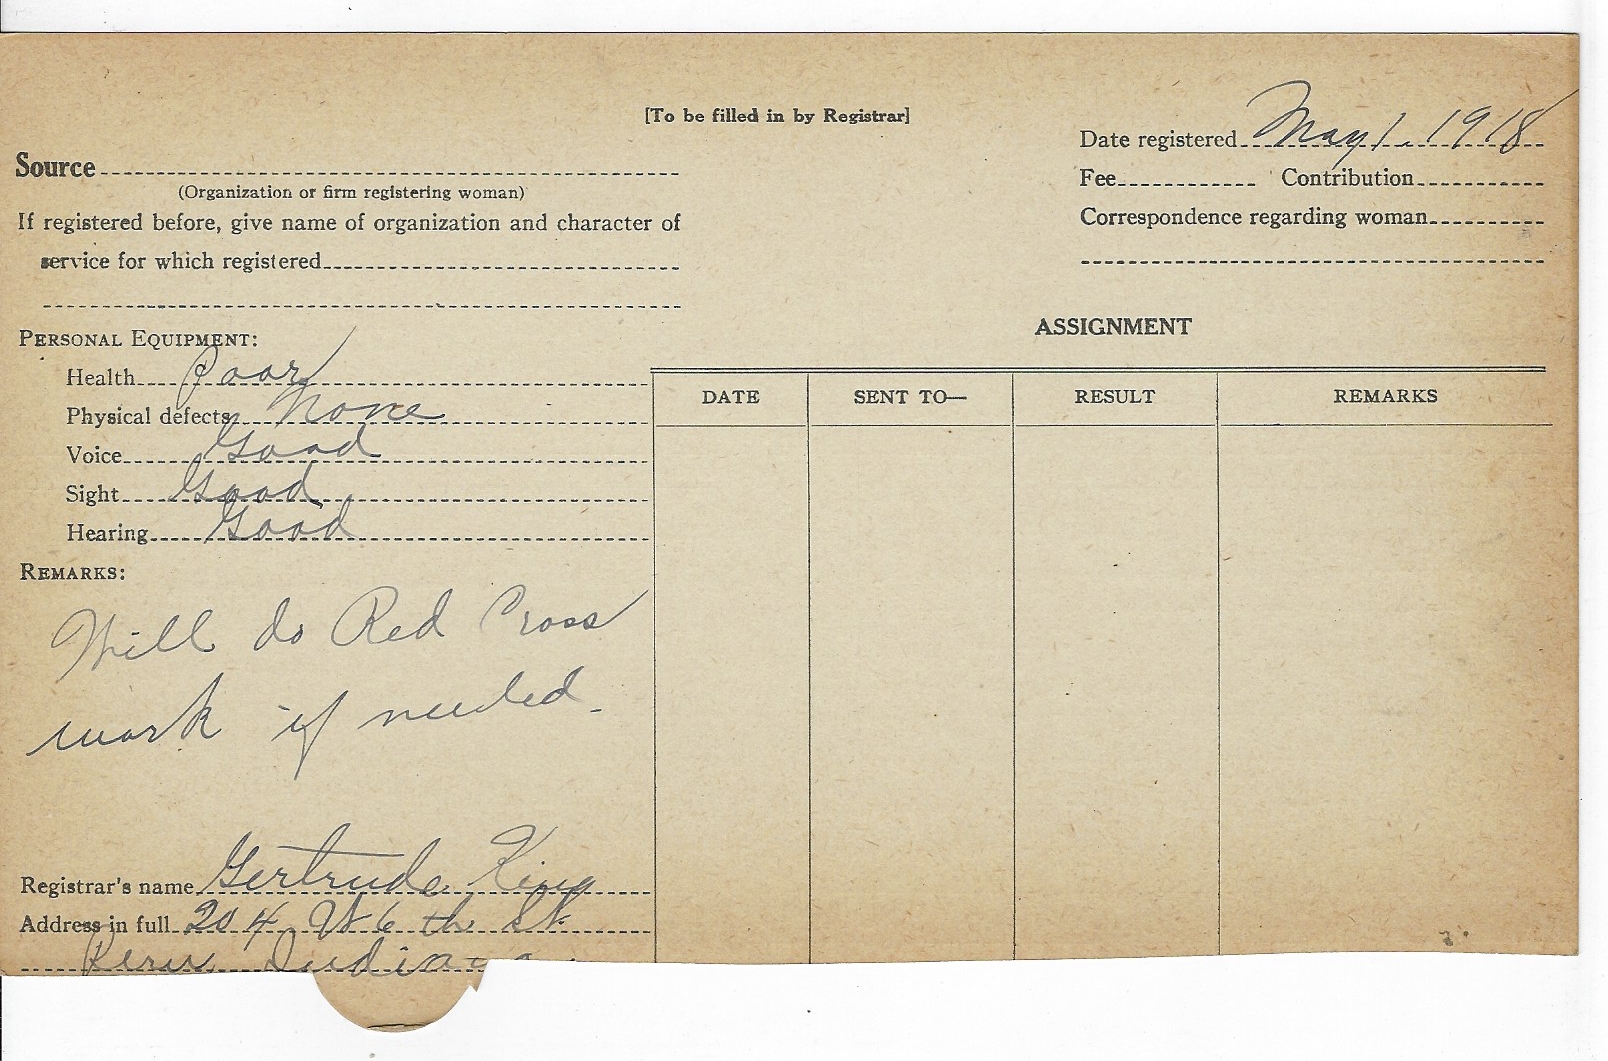 [To be filled in by Registrar]
Date registered May 1. 1918
Source
(Organization or firm registering woman)
Fee Contribution
If registered before, give name of organization and character of
service for which registered
Correspondence regarding woman
PERSONAL EQUIPMENT:
Health Poor
Physical defects None
Voice Good
Sight Good
Hearing Good
REMARKS:
Will do Red Cross
work if needed.
Registrar's name Gertrude King
Address in full 204 W 6th St
Peru Indiana
ASSIGNMENT
DATE SENT TO— RESULT REMARKS